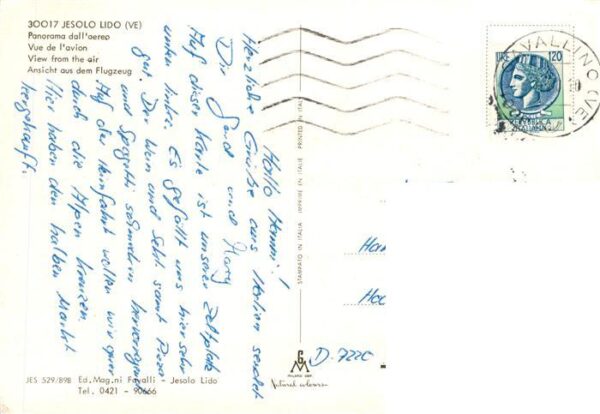 30017 JESOLO LIDO (VE)
Panorama dall'aereo
Vue de l'avion
View from the air
Ansicht aus dem Flugzeug
Hallo Hanni!
Herzliche Grüße aus Italien sendet
Dir Gerd und
Auf dieser Karte ist unserer Zeltplatz
unten links. Es gefällt uns hier sehr
gut. Der Wein und Sekt samt Pizza
und Spagetti schmecken hervorragend
Auf der Heimfahrt wollen wir quer
durch die Alpen kreuzen.
Wir haben den halben Markt
leergekauft.
PRINTED IN ITALY
IMPRIMÉ EN ITALIE
STAMPATO IN ITALIA
G M
MILANO
Natural colour
LIRE 120
REPUBBLICA
ITALIANA
CAVALLINO (VE)
D. 7220
JES 529/898 Ed. Mag.ni Favalli - Jesolo Lido
Tel. 0421 - 90666